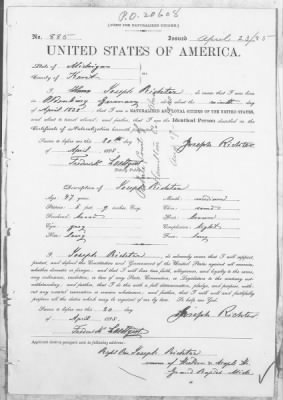 P.O. 20608
[FORM FOR NATURALIZED CITIZEN.]
No. 885 Issued April 23/85
UNITED STATES OF AMERICA.
State of Michigan
County of Kent
I, Joseph Richter, do swear that I was born
in Germany on or about the ninth day
of April 18 ; that I am a NATURALIZED AND LOYAL CITIZEN OF THE UNITED STATES,
and about to travel abroad; and further, that I am the Identical Person described in the
Certificate of Naturalization
Sworn to before me this 20th day
of April 188 Joseph Richter
Frederick
Description of Joseph Richter
Age: 47 years Mouth: medium
Stature: 5 feet 9 inches Eng. Chin:
Forehead: Hair: brown
Eyes: gray Complexion: light
Nose: long Face: long
I, Joseph Richter, do solemnly swear that I will support,
protect, and defend the Constitution and Government of the United States against all enemies,
whether domestic or foreign; and that I will bear true faith, allegiance, and loyalty to the same,
any ordinance, resolution, or law of any State, Convention, or Legislature to the contrary not-
withstanding; and further, that I do this with a full determination, pledge, and purpose, with-
out any mental reservation or evasion whatsoever; and further, that I will well and faithfully
perform all the duties which may be required of me by law. So help me God.
Sworn to before me this 20 day
of April 188 Joseph Richter
Frederick
Applicant desires passport sent to following address:
Right Rev Joseph Richter
Grand Rapids Mich